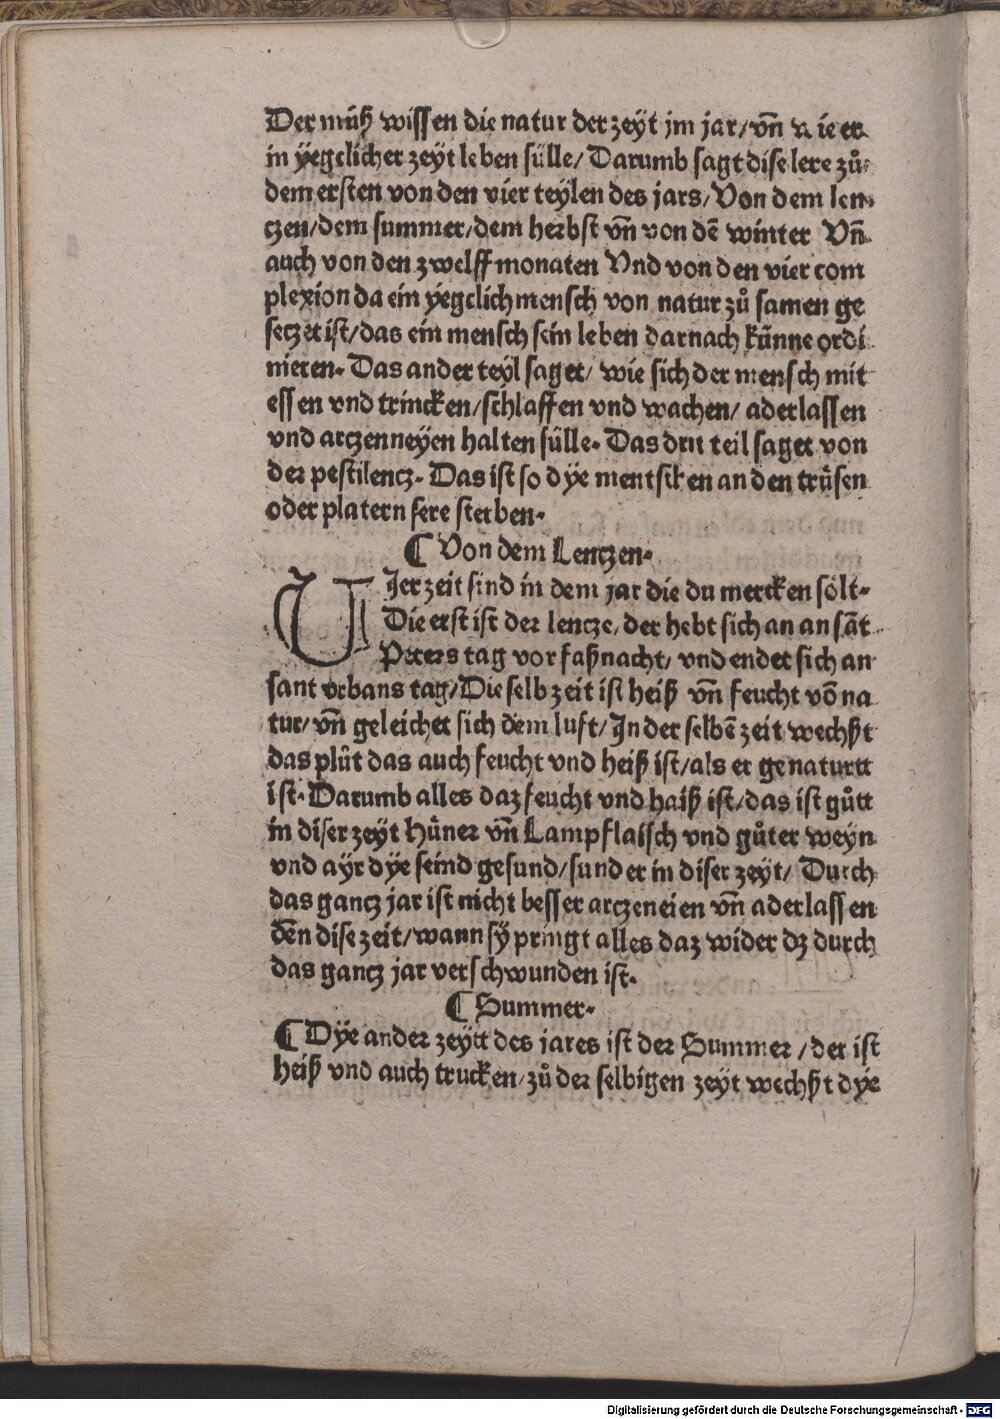 Der můß wissen die natur der zeÿt jm jar/ vn̄ wie er
in ÿegclicher zeÿt leben sülle/ Darumb sagt dise lere zů-
dem ersten von den vier teÿlen des jars/ Von dem len-
czen/ dem summer/ dem herbst vn̄ von dē winter Vn̄
auch von den zwelff monaten Vnd von den vier com
plexion da ein ÿegclich mensch von natur zů samen ge
seczet ist/ das ein mensch sein leben darnach künne ordi
nieren. Das ander teÿl saget/ wie sich der mensch mit
essen vnd trincken/ schlaffen vnd wachen/ aderlassen
vnd arczenneÿen halten sülle. Das drit teil saget von
der pestilencz. Das ist so dÿe mentschen an den trüsen
oder platern sere sterben.
¶ Von dem Lenczen.
VJer zeit sind in dem jar die du mercken sölt.
Die erst ist der lencze, der hebt sich an an sāt
Peters tag vor faßnacht/ vnd endet sich an
sant vrbans tag/ Die selb zeit ist heiß vn̄ feucht vō na
tur/ vn̄ geleichet sich dem luft/ In der selbē zeit wechßt
das plůt das auch feucht vnd heiß ist/ als er genaturtt
ist. Darumb alles daz feucht vnd haiß ist/ das ist gůtt
in diser zeÿt Hüner vn̄ Lampflaisch vnd gůter weÿn
vnd aÿr dÿe seind gesund/ sunder in diser zeÿt/ Durch
das gancz jar ist nicht besser arczeneien vn̄ aderlassen
deñ dise zeit/ wann sÿ pringt alles daz wider dz durch
das gancz jar verschwunden ist.
¶ Summer.
¶ Dÿe ander zeÿtt des jares ist der Summer / der ist
heiß vnd auch trucken/ zů der selbigen zeÿt wechßt dÿe
Digitalisierung gefördert durch die Deutsche Forschungsgemeinschaft - DFG